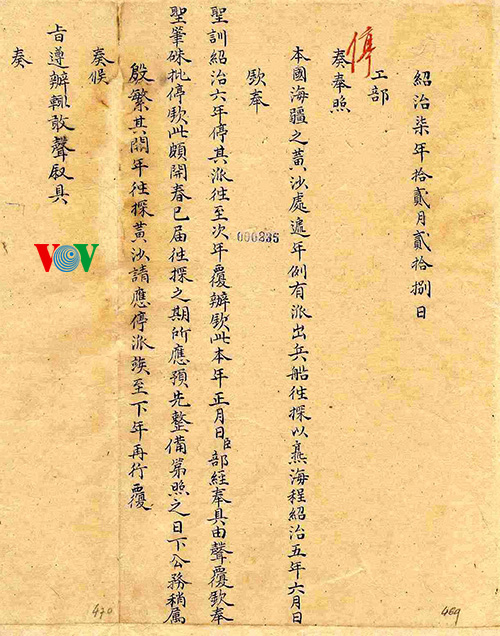 紹治柒年拾貳月貳拾捌日
工部
停
奏奉照
本國海疆之黃沙處遞年例有派出兵船往探以熟海程紹治五年六月日
欽奉
聖訓紹治六年停其派往至次年覆辦欽此本年正月日臣部經奉具由聲覆欽奉
聖筆硃批停欽此頗開春已屆往探之期所應預先整備第照之日下公務稍屬
殷繁其開年往探黃沙請應停派俟至下年再行覆
奏候
旨遵辦輒敢聲叙具
奏
000235
VOV
470
469